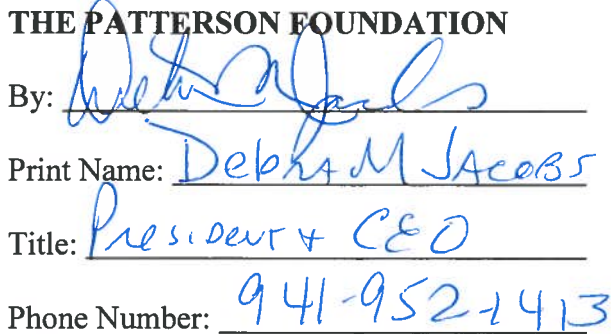 THE PATTERSON FOUNDATION
By: Debra M Jacobs
Print Name: Debra M JACOBS
Title: President + CEO
Phone Number: 941-952-1413